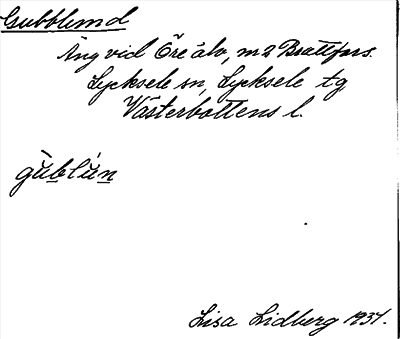 Gubblund
Äng vid Öre älv, m 2 Brattfors.
Lycksele sn, Lycksele tg
Västerbottens l.
gùblún
Lisa Lidberg 1937.